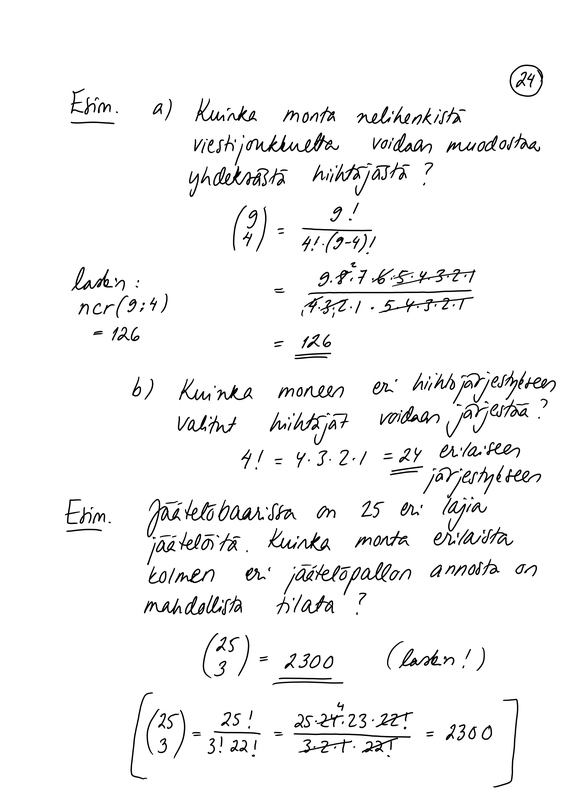 24
Esim. a) Kuinka monta nelihenkistä
viestijoukkuetta voidaan muodostaa
yhdeksästä hiihtäjästä?
(9 4) = 9! / 4!·(9-4)!
laskin:
ncr(9;4)
= 126
= 9·8·7·6·5·4·3·2·1 / 4·3·2·1·5·4·3·2·1
= 126
b) Kuinka moneen eri hiihtojärjestykseen
valitut hiihtäjät voidaan järjestää?
4! = 4·3·2·1 = 24 erilaiseen
järjestykseen
Esim. Jäätelöbaarissa on 25 eri lajia
jäätelöitä. Kuinka monta erilaista
kolmen eri jäätelöpallon annosta on
mahdollista tilata?
(25 3) = 2300 (laskin!)
[(25 3) = 25! / 3! 22! = 25·24·23·22! / 3·2·1·22! = 2300]